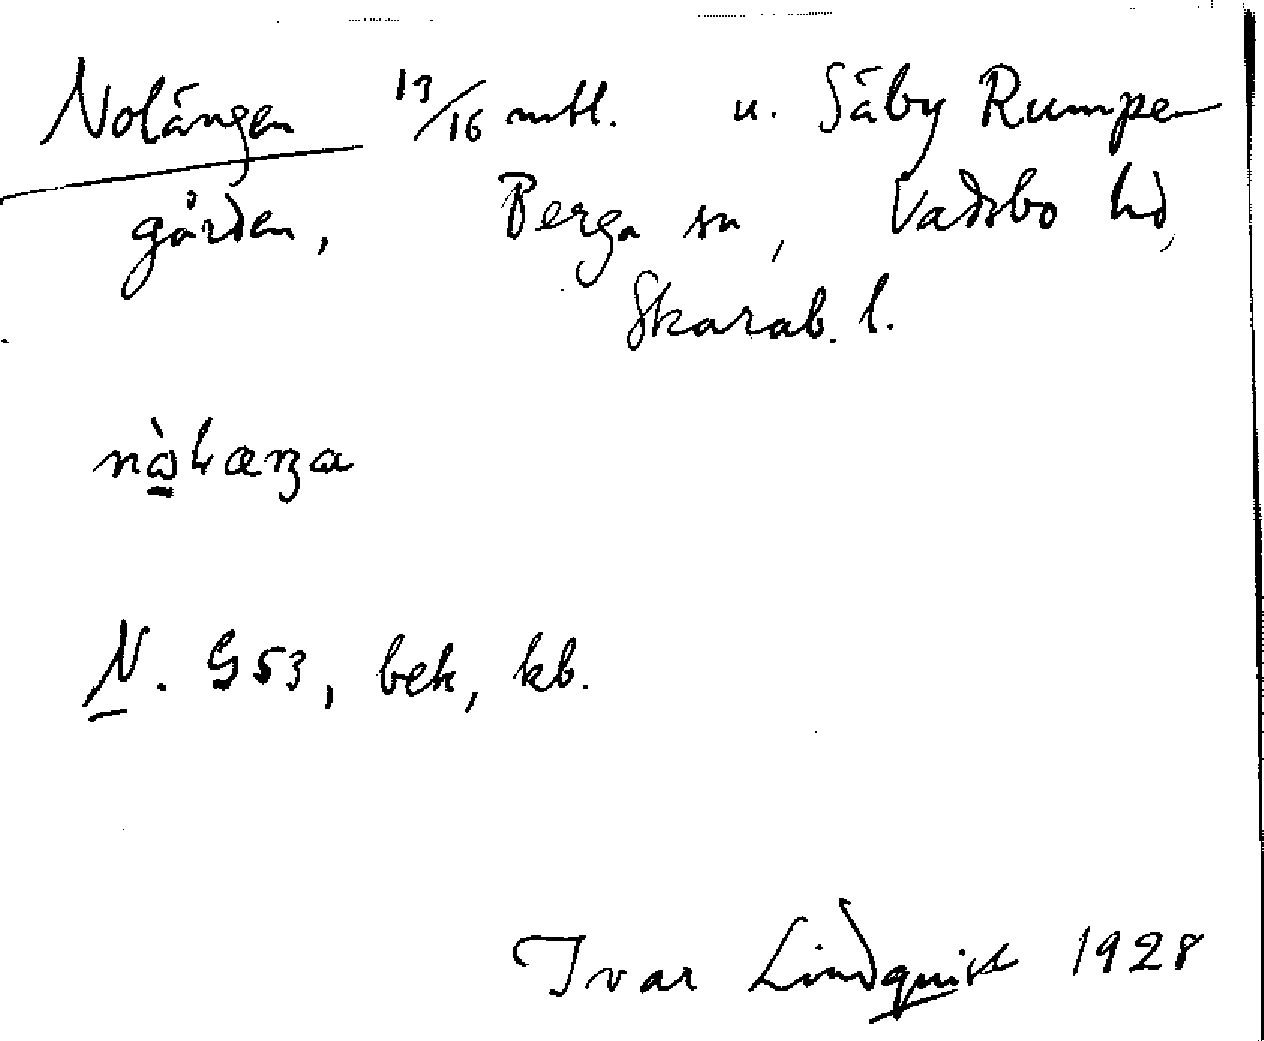 Nolängen 13/16 mtl. u. Säby Rumpe-
gården, Berga sn, Vadsbo hd,
Skarab. l.
N. G53, bek, kb.
Ivar Lindquist 1928